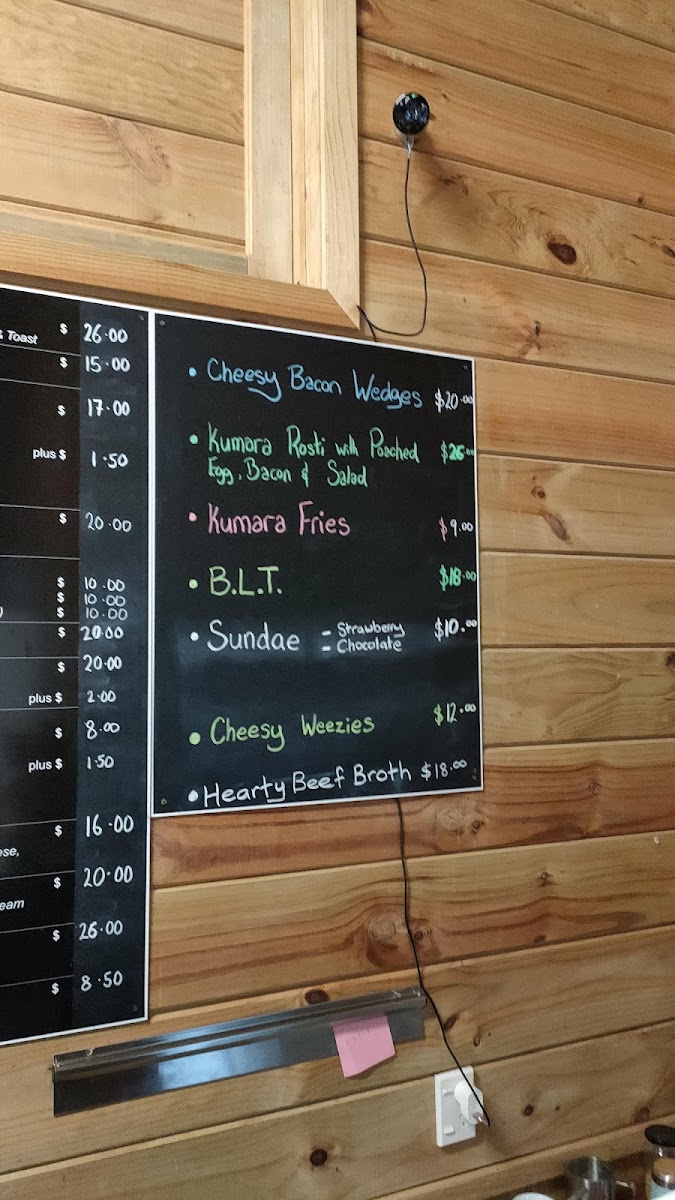 & Toast $ 26.00
$ 15.00
$ 17.00
plus $ 1.50
$ 20.00
$ 10.00
$ 10.00
$ 10.00
$ 20.00
$ 20.00
plus $ 2.00
$ 8.00
plus $ 1.50
$ 16.00
$ 20.00
eam
$ 26.00
$ 8.50
• Cheesy Bacon Wedges $20.00
• Kumara Rosti with Poached $26.00
Egg, Bacon & Salad
• Kumara Fries $9.00
• B.L.T. $18.00
• Sundae - Strawberry $10.00
- Chocolate
• Cheesy Weezies $12.00
• Hearty Beef Broth $18.00